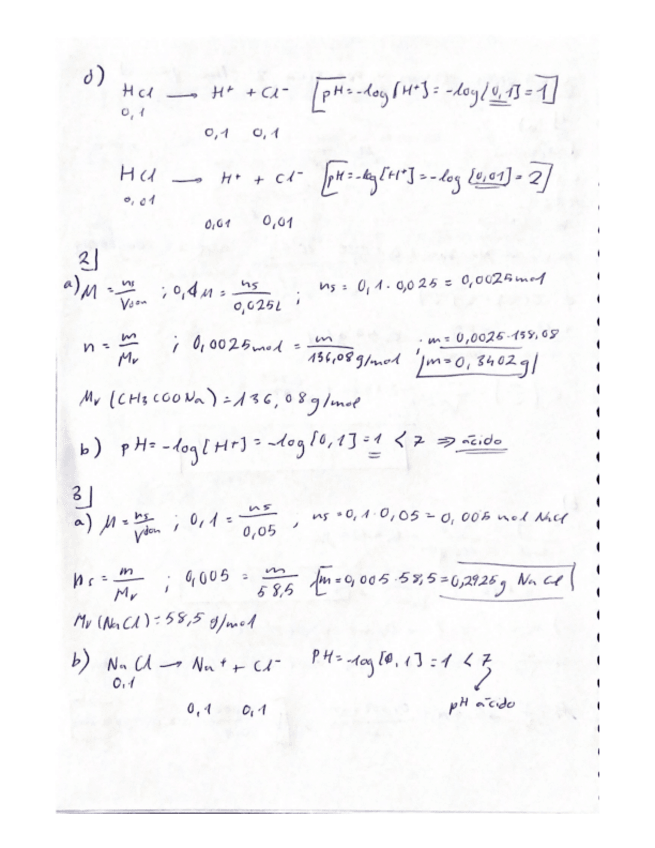 d)
HCl → H⁺ + Cl⁻ [pH = -log [H⁺] = -log [0,1] = 1]
0,1
0,1 0,1
HCl → H⁺ + Cl⁻ [pH = -log [H⁺] = -log [0,01] = 2]
0,01
0,01 0,01
2]
a) M = ns/Vdon ; 0,1M = ns/0,025L ; ns = 0,1 · 0,025 = 0,0025mol
n = m/Mr ; 0,0025mol = m/136,08g/mol ; m = 0,0025 · 138,08
m = 0,3402g
Mr (CH3COONa) = 136,08g/mol
b) pH = -log [H+] = -log [0,1] = 1 < 7 ⇒ ácido
3]
a) M = ns/Vdon ; 0,1 = ns/0,05 , ns = 0,1 · 0,05 = 0,005 mol NaCl
ns = m/Mr ; 0,005 = m/58,5 [m = 0,005 · 58,5 = 0,2925g NaCl]
Mr (NaCl) = 58,5 g/mol
b) NaCl → Na⁺ + Cl⁻ PH = -log [0,1] = 1 < 7
0,1
0,1 0,1 pH ácido